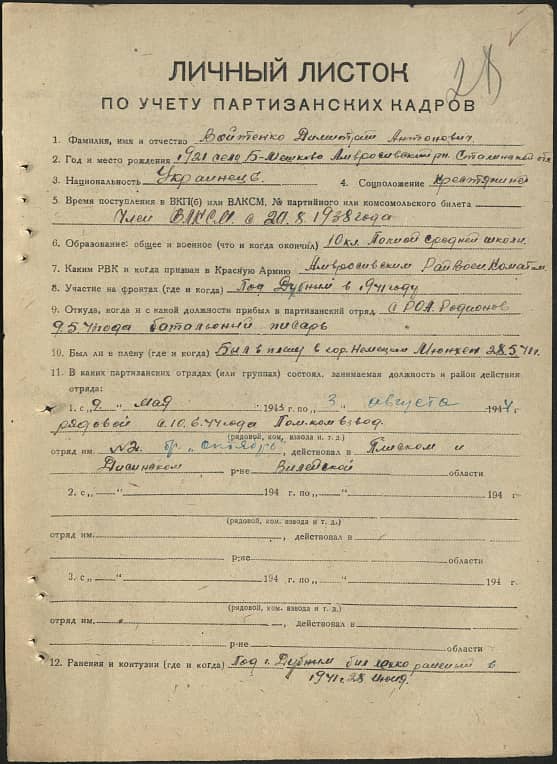 28
ЛИЧНЫЙ ЛИСТОК
ПО УЧЕТУ ПАРТИЗАНСКИХ КАДРОВ
1. Фамилия, имя и отчество Войтенко Димитрий Антонович.
2. Год и место рождения 1921 село Б-Мешково Амвросиевский рн. Сталинской обл
3. Национальность Украинец 4. Соцположение Крестьянин
5. Время поступления в ВКП(б) или ВЛКСМ, № партийного или комсомольского билета
Член ВЛКСМ с 20.8.1938 года
6. Образование: общее и военное (что и когда окончил) 10 кл. Полной средней школы.
7. Каким РВК и когда призван в Красную Армию Амвросивским РайВоенКоматом
8. Участие на фронтах (где и когда) Под Дубным в 1941 году
9. Откуда, когда и с какой должности прибыл в партизанский отряд с РОА. Родионов
года батальоный писарь
10. Был ли в плену (где и когда) Был в плену в гор. Немецким Мюнхен 28.5.41г.
11. В каких партизанских отрядах (или группах) состоял, занимаемая должность и район действия
отряда:
1. с „ “ май 1943 г. по „3 “ августа 1944 г
рядовой с 10.6.44 года Пом.ком взвод.
(рядовой, ком. взвода и т. д.)
отряд им. №2. бр „октябрь“, действовал в Плиском и
Дисинском р-не Вилейской области
2. с „ “ 194 г. по „ “ 194 г
(рядовой, ком. взвода и т. д.)
отряд им. , действовал в
р-не области
3. с „ “ 194 г. по „ “ 194 г
(рядовой, ком. взвода и т. д.)
отряд им. , действовал в
р-не области
12. Ранения и контузии (где и когда) Под г. Дубным был легко раненый в
1941 г. 28 июня.